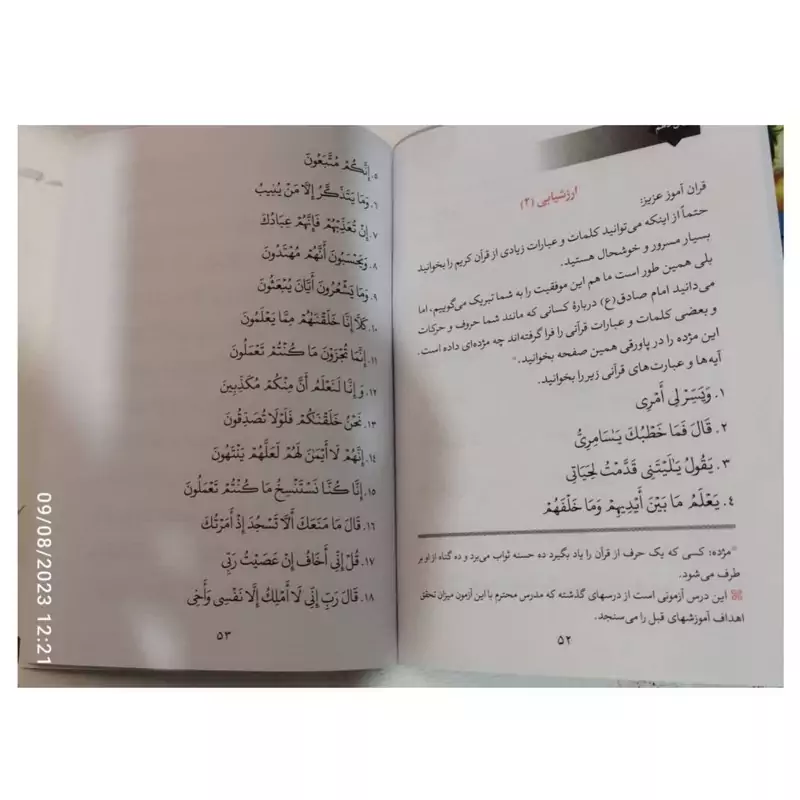 ارزشیابی (۲)
قرآن آموز عزیز:
حتماً از اینکه می‌توانید کلمات و عبارات زیادی از قرآن کریم را بخوانید
بسیار مسرور و خوشحال هستید.
بلی همین طور است ما هم این موفقیت را به شما تبریک می‌گوییم، اما
می‌دانید امام صادق(ع) دربارهٔ کسانی که مانند شما حروف و حرکات
و بعضی کلمات و عبارات قرآنی را فرا گرفته‌اند چه مژده‌ای داده است.
این مژده را در پاورقی همین صفحه بخوانید.*
آیه‌ها و عبارت‌های قرآنی زیر را بخوانید.
۱. وَیَسِّرْ لِی أَمْرِی
۲. قَالَ فَمَا خَطْبُكَ یَـٰسَامِرِیُّ
۳. یَقُولُ یَـٰلَیْتَنِی قَدَّمْتُ لِحَیَاتِی
۴. یَعْلَمُ مَا بَیْنَ أَیْدِیهِمْ وَمَا خَلْفَهُمْ
*مژده: کسی که یک حرف از قرآن را یاد بگیرد ده حسنه ثواب می‌برد و ده گناه از او بر
طرف می‌شود.
این درس آزمونی است از درسهای گذشته که مدرس محترم با این آزمون میزان تحقق
اهداف آموزشهای قبل را می‌سنجد.
۵۲
۵. إِنَّکُمْ مُتَّبَعُونَ
۶. وَمَا یَتَذَکَّرُ إِلَّا مَنْ یُنِیبُ
۷. إِنْ تُعَذِّبْهُمْ فَإِنَّهُمْ عِبَادُكَ
۸. وَیَحْسَبُونَ أَنَّهُمْ مُهْتَدُونَ
۹. وَمَا یَشْعُرُونَ أَیَّانَ یُبْعَثُونَ
۱۰. کَلَّا إِنَّا خَلَقْنَـٰهُمْ مِمَّا یَعْلَمُونَ
۱۱. إِنَّمَا تُجْزَوْنَ مَا کُنْتُمْ تَعْمَلُونَ
۱۲. وَ إِنَّا لَنَعْلَمُ أَنَّ مِنْکُمْ مُکَذِّبِینَ
۱۳. نَحْنُ خَلَقْنَاکُمْ فَلَوْلَا تُصَدِّقُونَ
۱۴. إِنَّهُمْ لَا أَیْمَـٰنَ لَهُمْ لَعَلَّهُمْ یَنْتَهُونَ
۱۵. إِنَّا کُنَّا نَسْتَنْسِخُ مَا کُنْتُمْ تَعْمَلُونَ
۱۶. قَالَ مَا مَنَعَكَ أَلَّا تَسْجُدَ إِذْ أَمَرْتُكَ
۱۷. قُلْ إِنِّی أَخَافُ إِنْ عَصَیْتُ رَبِّی
۱۸. قَالَ رَبِّ إِنِّی لَا أَمْلِكُ إِلَّا نَفْسِی وَأَخِی
۵۳
09/08/2023 12:21